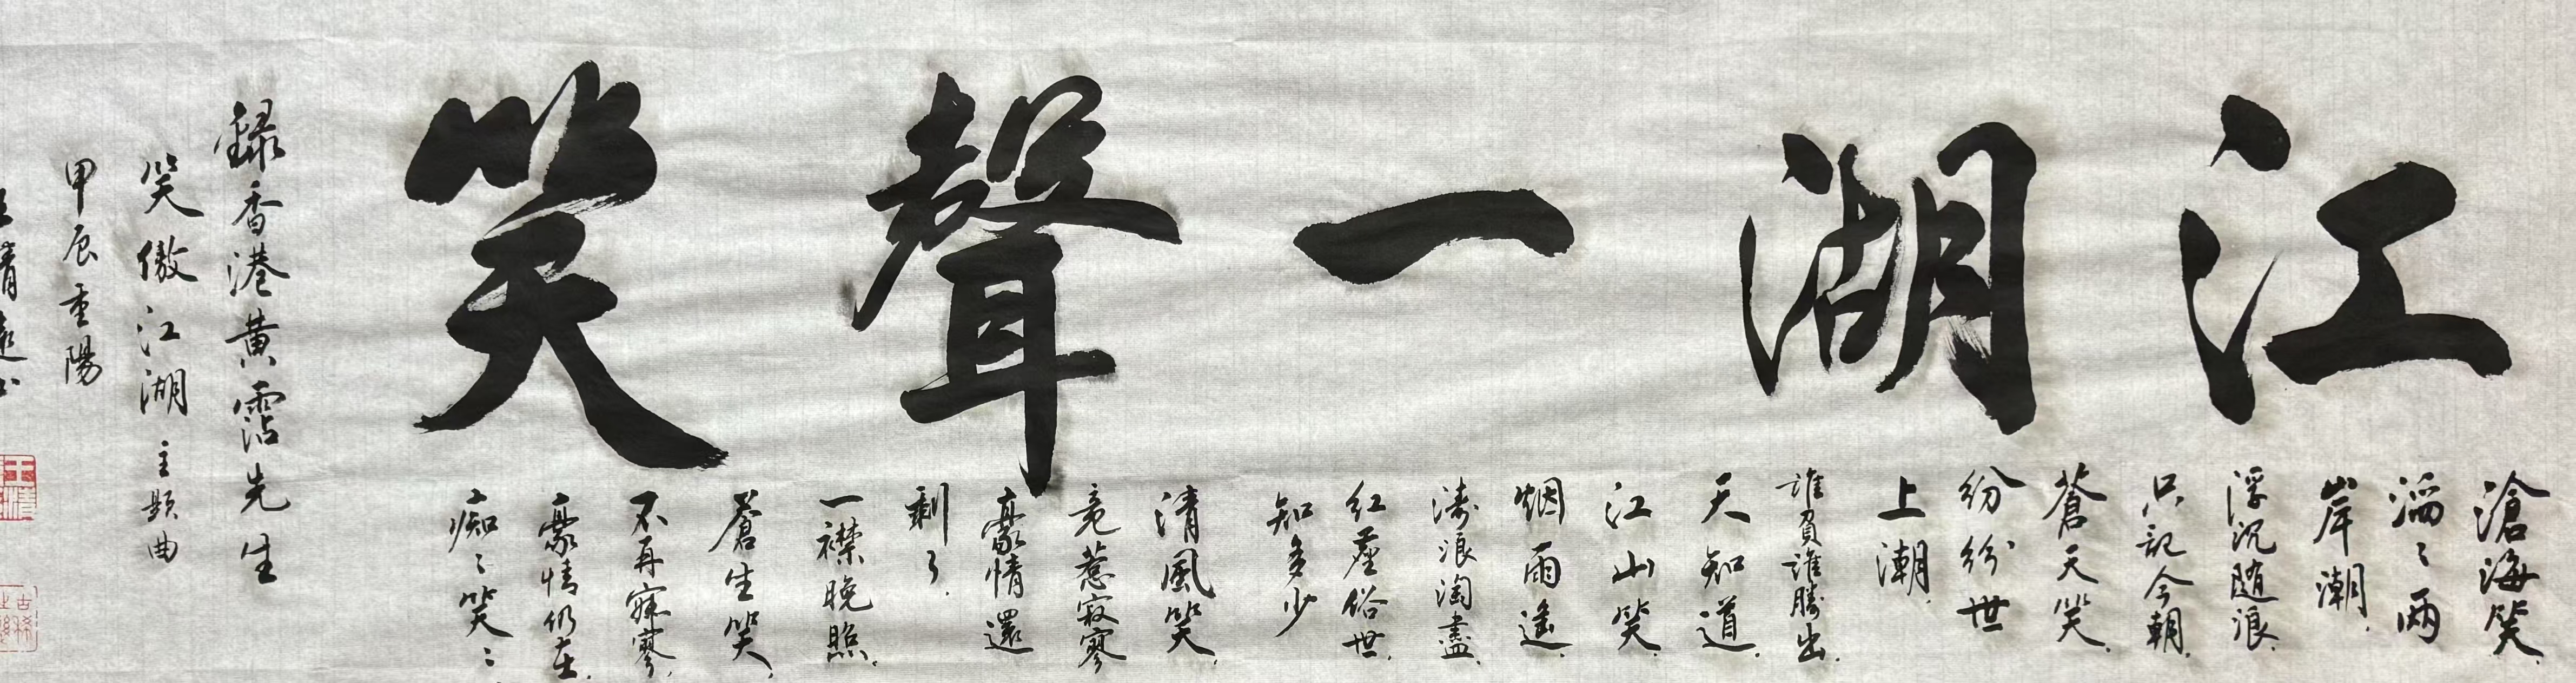 江湖一聲笑
滄海笑
滔〻兩
岸潮
浮沉随浪
只記今朝
蒼天笑
紛紛世
上潮
誰負誰勝出
天知道
江山笑
烟雨遥
濤浪淘盡
红塵俗世
知多少
清風笑
竟惹寂寥
豪情還
剩了
一襟晚照
蒼生笑
不再寂寥
豪情仍在
痴〻笑〻
録香港黄霑先生
笑傲江湖主题曲
甲辰重陽